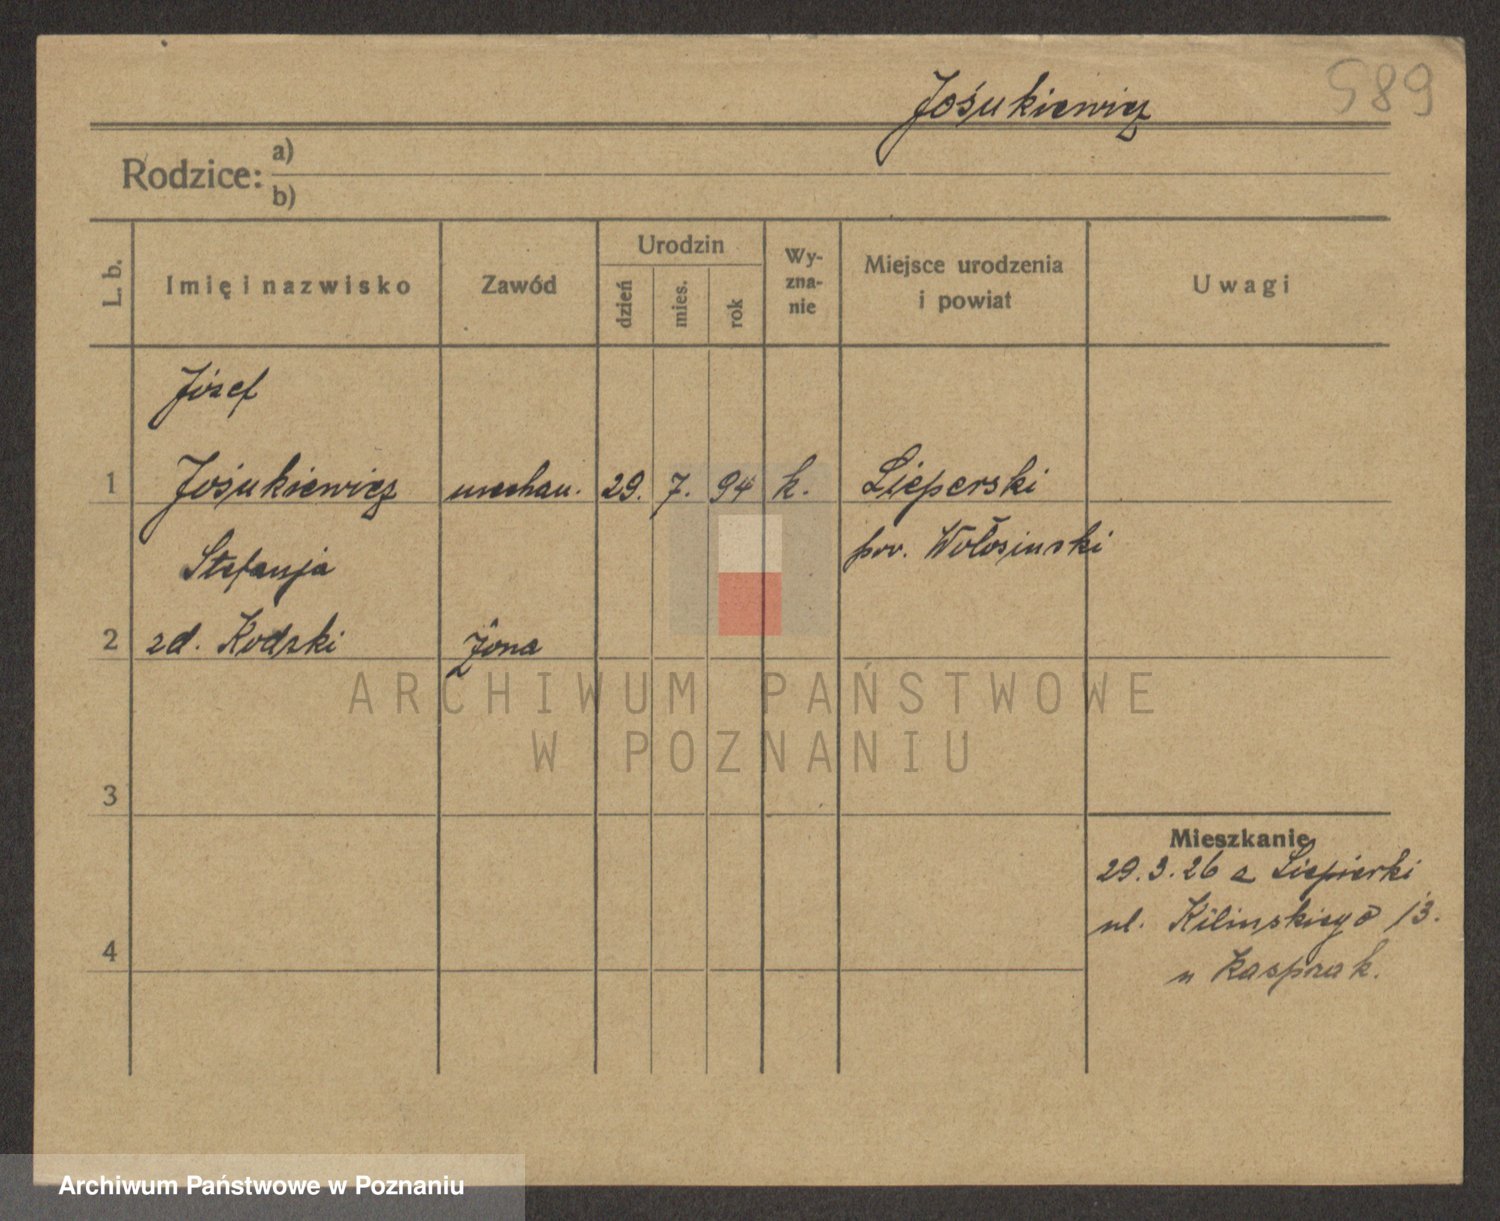 589
Jośukiewicz
Rodzice: a)
b)
L. b.
Imię i nazwisko
Zawód
Urodzin
dzień
mies.
rok
Wy-
zna-
nie
Miejsce urodzenia
i powiat
Uwagi
Józef
1 Jośukiewicz mechan. 29. 7. 94 k. Lieperski
pow. Wołosinski
Stefanja
2 zd. Kodzki Żona
ARCHIWUM PAŃSTWOWE
W POZNANIU
3
Mieszkanie
29.3.26 z Liepierki
ul. Kilinskiego 13.
4
u Kasprzak.
Archiwum Państwowe w Poznaniu